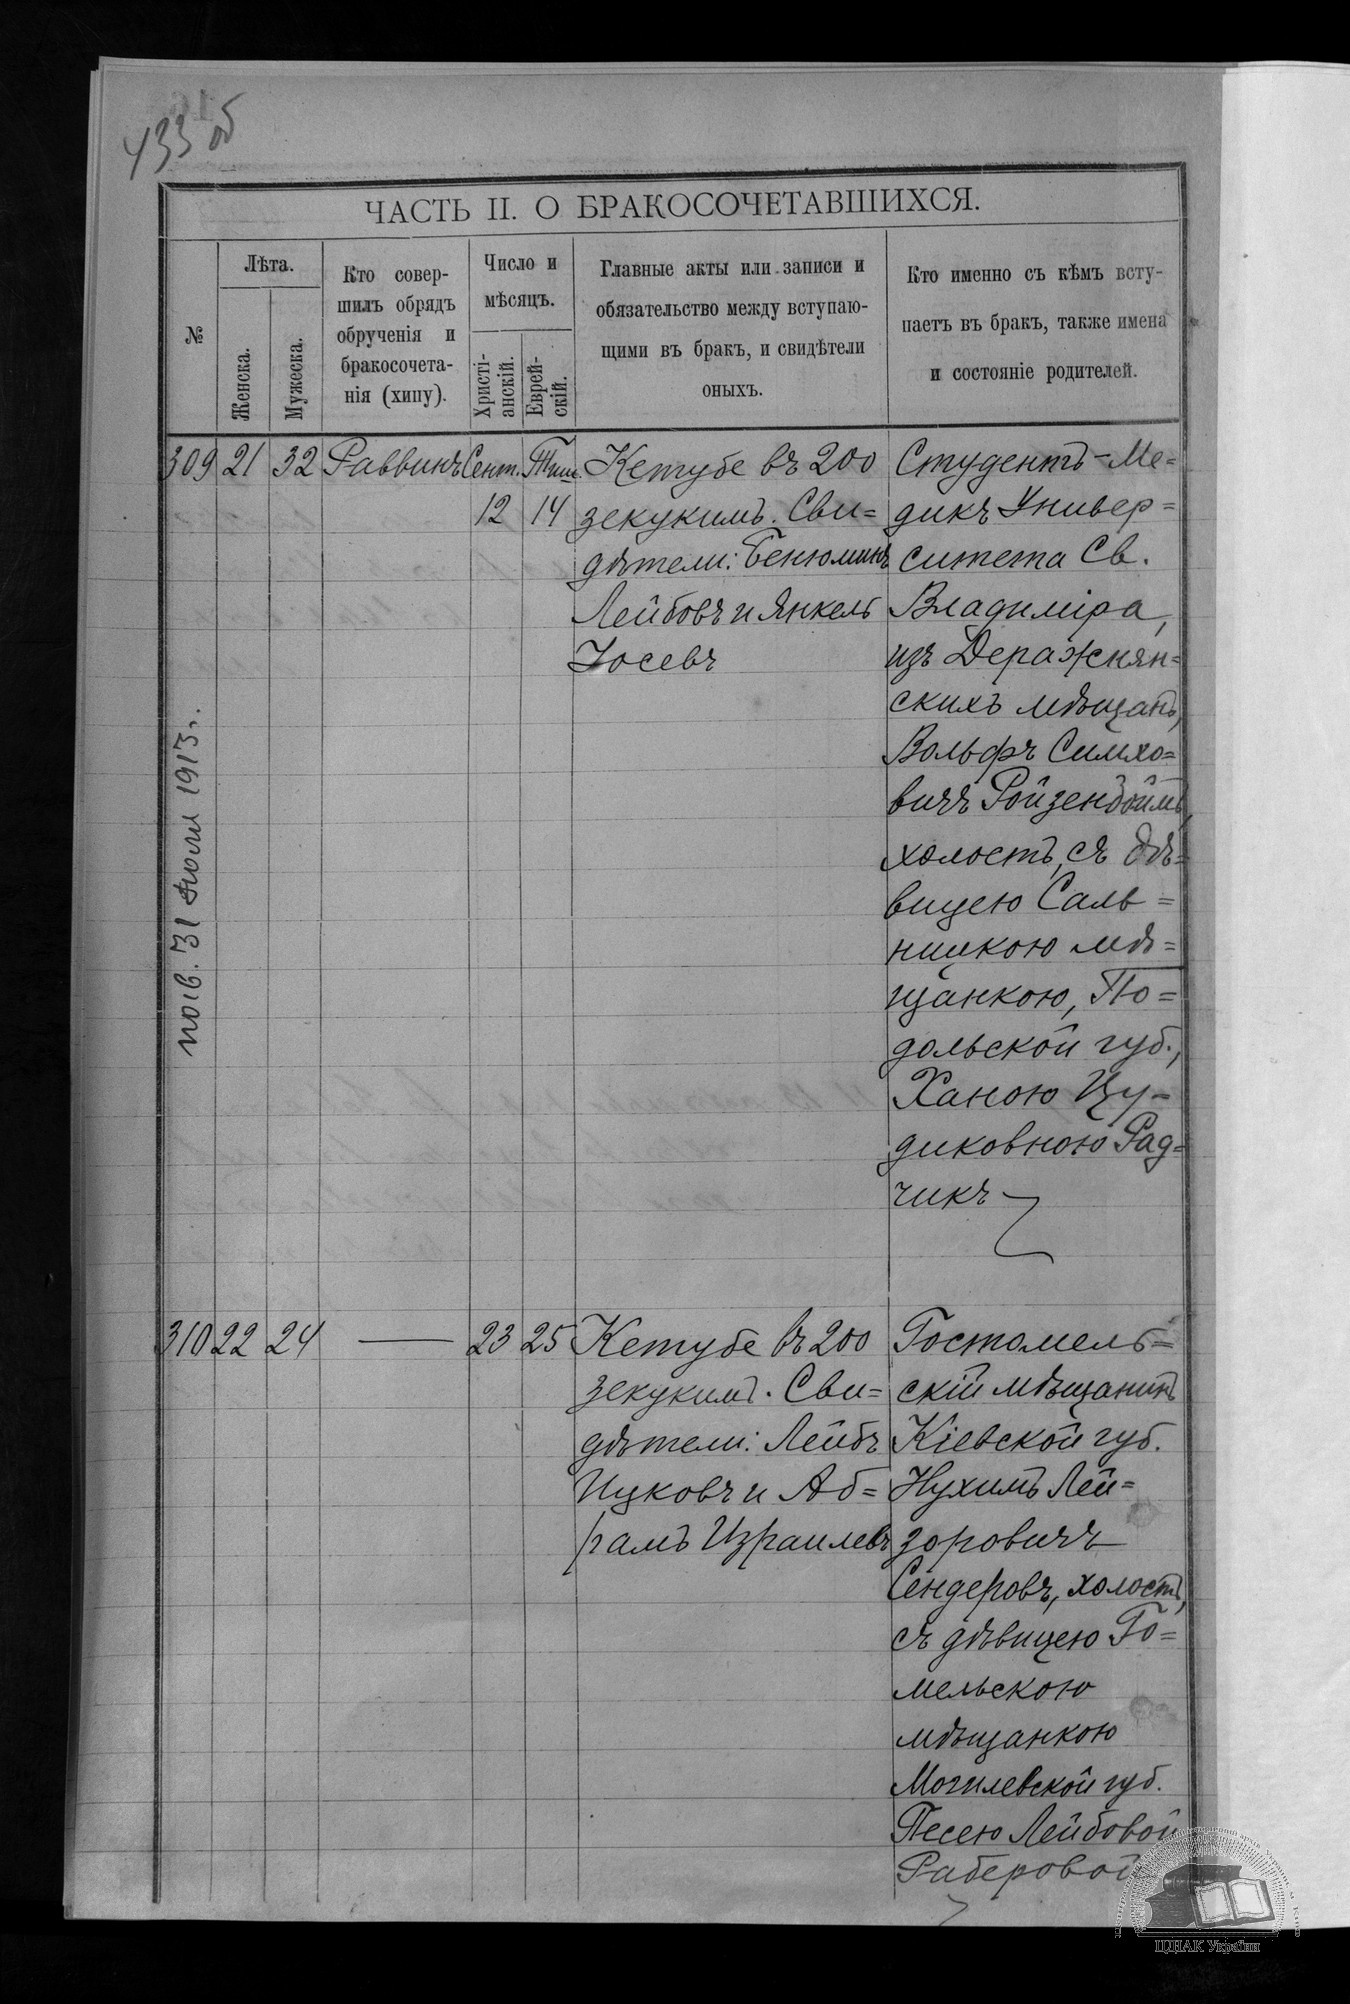 433 об
ЧАСТЬ II. О БРАКОСОЧЕТАВШИХСЯ.
№
Лѣта.
Женска.
Мужеска.
Кто совер-
шилъ обрядъ
обрученія и
бракосочета-
нія (хипу).
Число и
мѣсяцъ.
Христі-
анскій.
Еврей-
скій.
Главные акты или записи и
обязательство между вступаю-
щими въ бракъ, и свидѣтели
оныхъ.
Кто именно съ кѣмъ всту-
паетъ въ бракъ, также имена
и состояніе родителей.
309 21 32 Раввинъ Сент. Тиш.
12 14
Кетубе въ 200
зекукимъ. Сви=
дѣтели: Бенюминъ
Лейбовъ и Янкель
Іосевъ
Студентъ-Ме=
дикъ Универ=
ситета Св.
Владиміра,
изъ Деражнян=
скихъ мѣщанъ,
Вольфъ Симхо=
вичъ Ройзенбоймъ,
холостъ, съ дѣ=
вицею Саль=
ницкою мѣ=
щанкою, По=
дольской губ.,
Ханою Цу=
диковною Рад=
чикъ
310 22 24 — 23 25
Кетубе въ 200
зекукимъ. Сви=
дѣтели: Лейбъ
Ицковъ и Аб=
рамъ Израилевъ
Гостомель=
скій мѣщанинъ
Кіевской губ.
Нухимъ Лей=
зоровичъ
Сендеровъ, холостъ,
съ дѣвицею Го=
мельскою
мѣщанкою
Могилевской губ.
Песею Лейбовой
Раберовой
31 Июля 1913 г.
ЦДІАК України